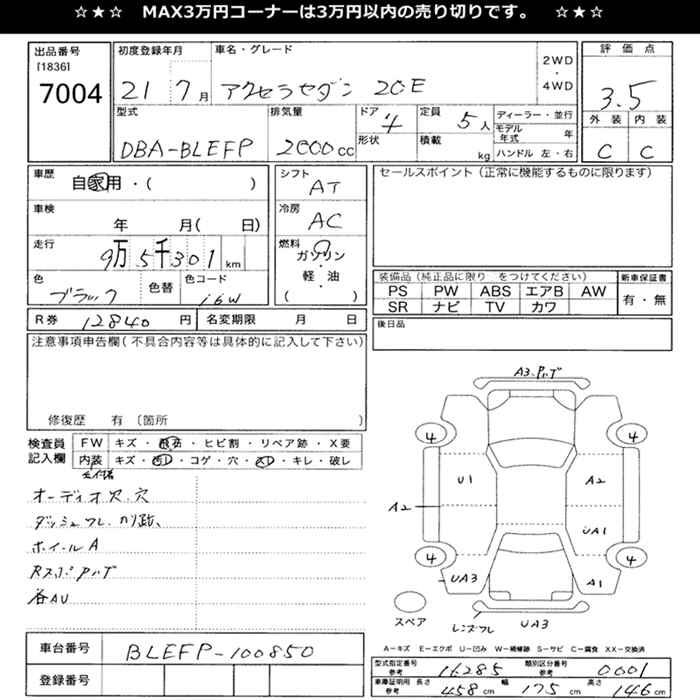 ☆★☆ MAX3万円コーナーは3万円以内の売り切りです。 ☆★☆
出品番号
[1836]
7004
初度登録年月
21 7月
車名・グレード
アクセラセダン 20E
2WD
・
4WD
評価点
3.5
外装 内装
C C
型式
DBA-BLEFP
排気量
2000cc
ドア 4
形状
定員 5人
積載 kg
ディーラー・並行
モデル年式 年
ハンドル 左・右
車歴
自家用・( )
車検
年 月( 日)
走行
9万5千301km
色
ブラック
色替
色コード
16W
シフト
AT
冷房
AC
燃料
ガソリン
・
軽・油
( )
セールスポイント(正常に機能するものに限ります)
装備品(純正品に限り をつけてください)
PS PW ABS エアB AW
SR ナビ TV カワ
新車保証書
有・無
R券 12840円
名変期限 月 日
後日品
注意事項申告欄(不具合内容等は具体的に記入して下さい)
修復歴 有〔箇所
検査員
記入欄
FW キズ・飛石・ヒビ割・リペア跡・X要
内装 キズ・・コゲ・穴・・キレ・破レ
オーディオ欠、穴
ダッシュワレ、
ホイールA
各AU
A3
4
4
U1
A2
A2
UA1
4
4
UA3
A1
スペア
レンズワレ
UA3
A-キズ E-エクボ U-凹み W-補修跡 S-サビ C-腐食 XX-交換済
車台番号
BLEFP-100850
登録番号
型式指定番号
参考
16285
類別区分番号
参考
0001
車庫証明用
参考
長さ 458cm
幅 175cm
高さ 146cm